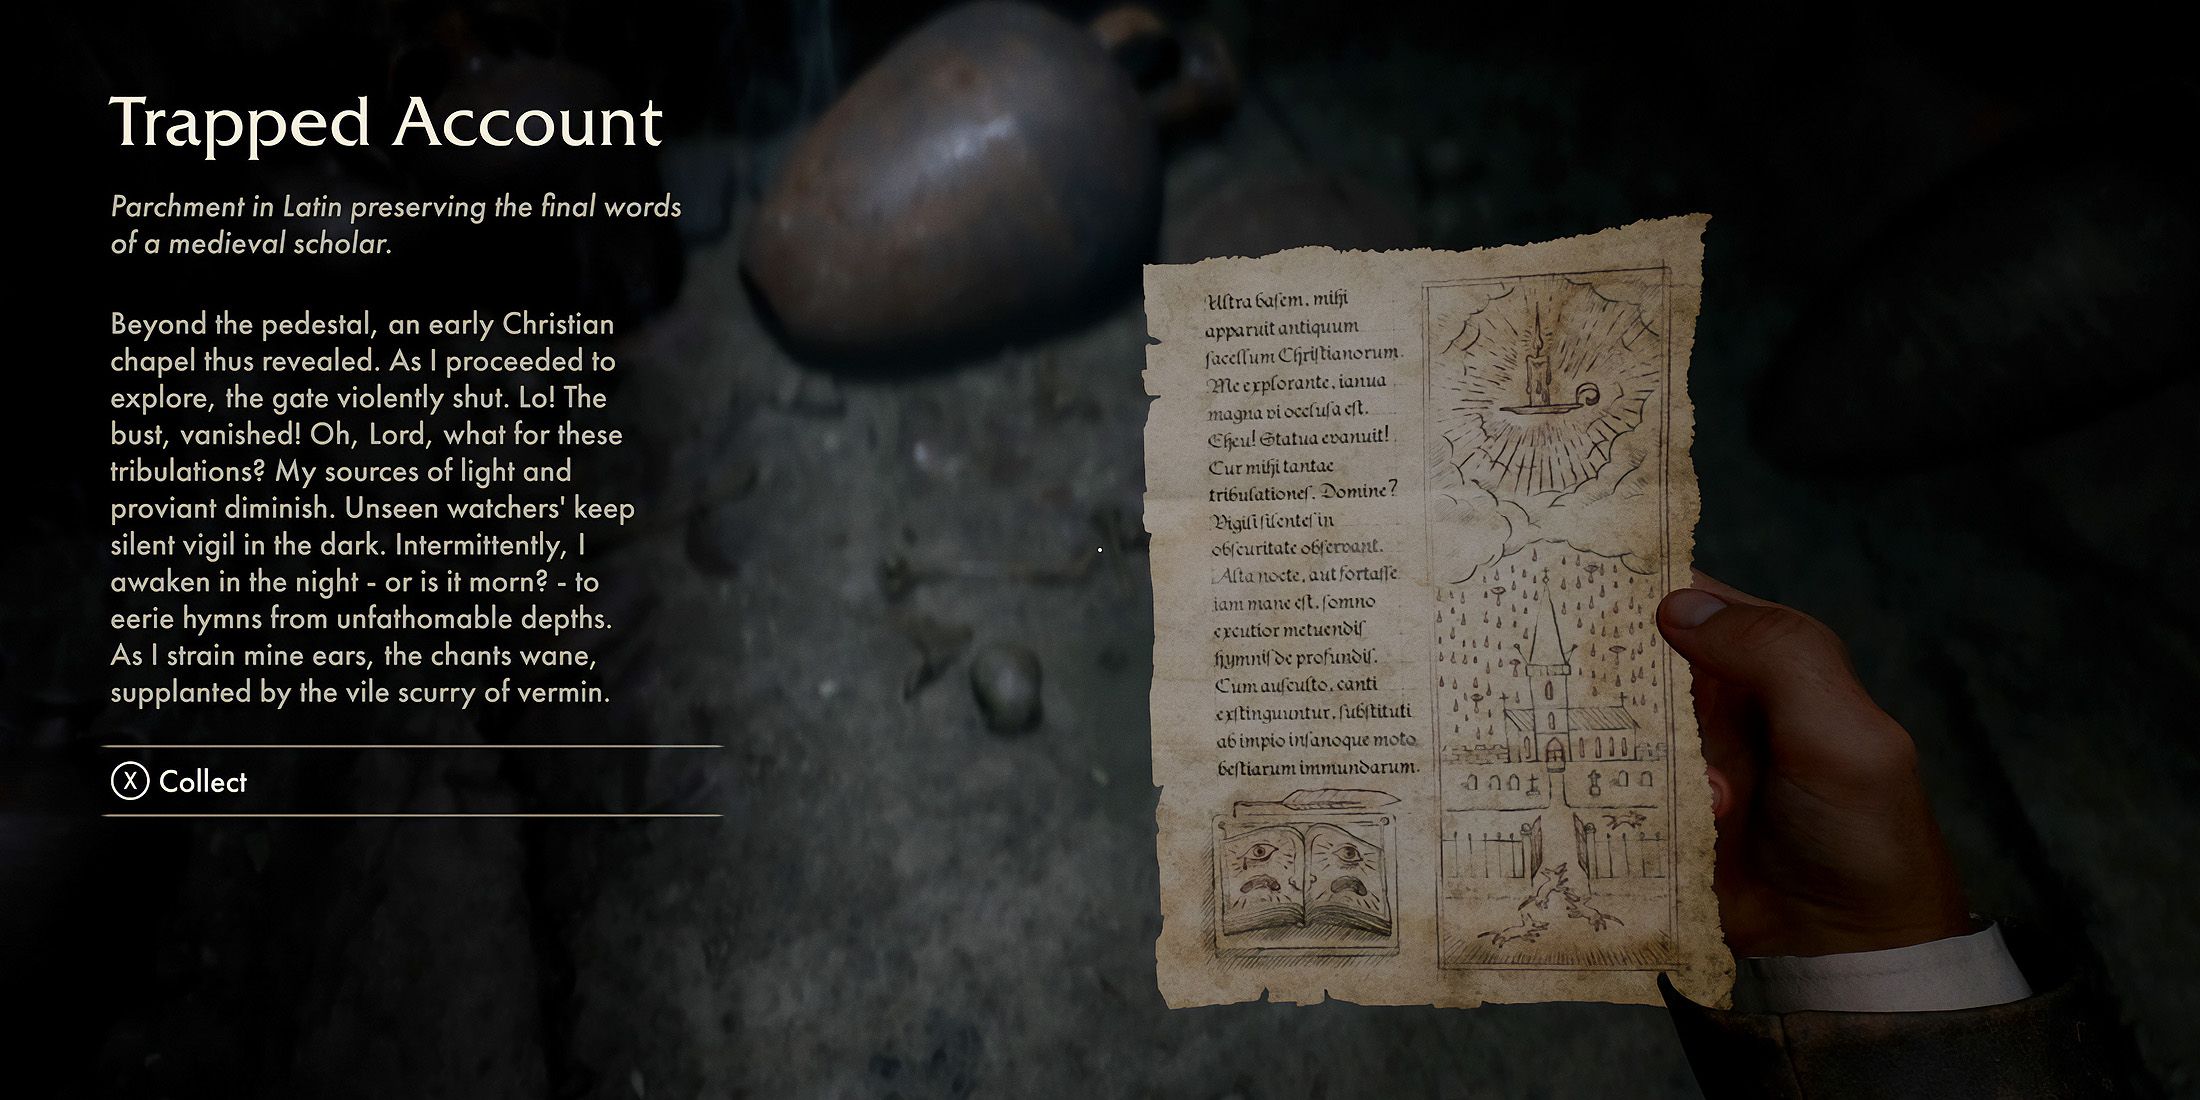 Trapped Account
Parchment in Latin preserving the final words
of a medieval scholar.
Beyond the pedestal, an early Christian
chapel thus revealed. As I proceeded to
explore, the gate violently shut. Lo! The
bust, vanished! Oh, Lord, what for these
tribulations? My sources of light and
proviant diminish. Unseen watchers' keep
silent vigil in the dark. Intermittently, I
awaken in the night - or is it morn? - to
eerie hymns from unfathomable depths.
As I strain mine ears, the chants wane,
supplanted by the vile scurry of vermin.
X Collect
Ultra baſem, mihi
apparuit antiquum
ſacellum Chriſtianorum.
Me explorante, ianua
magna vi occluſa eſt.
Eheu! Statua evanuit!
Cur mihi tantae
tribulationeſ, Domine?
Vigili ſilenteſ in
obſcuritate obſervant.
Alta nocte, aut fortaſſe
iam mane eſt, ſomno
excutior metuendiſ
hymniſ de profundiſ.
Cum auſculto, canti
exſtinguuntur, ſubſtituti
ab impio inſanoque moto
beſtiarum immundarum.